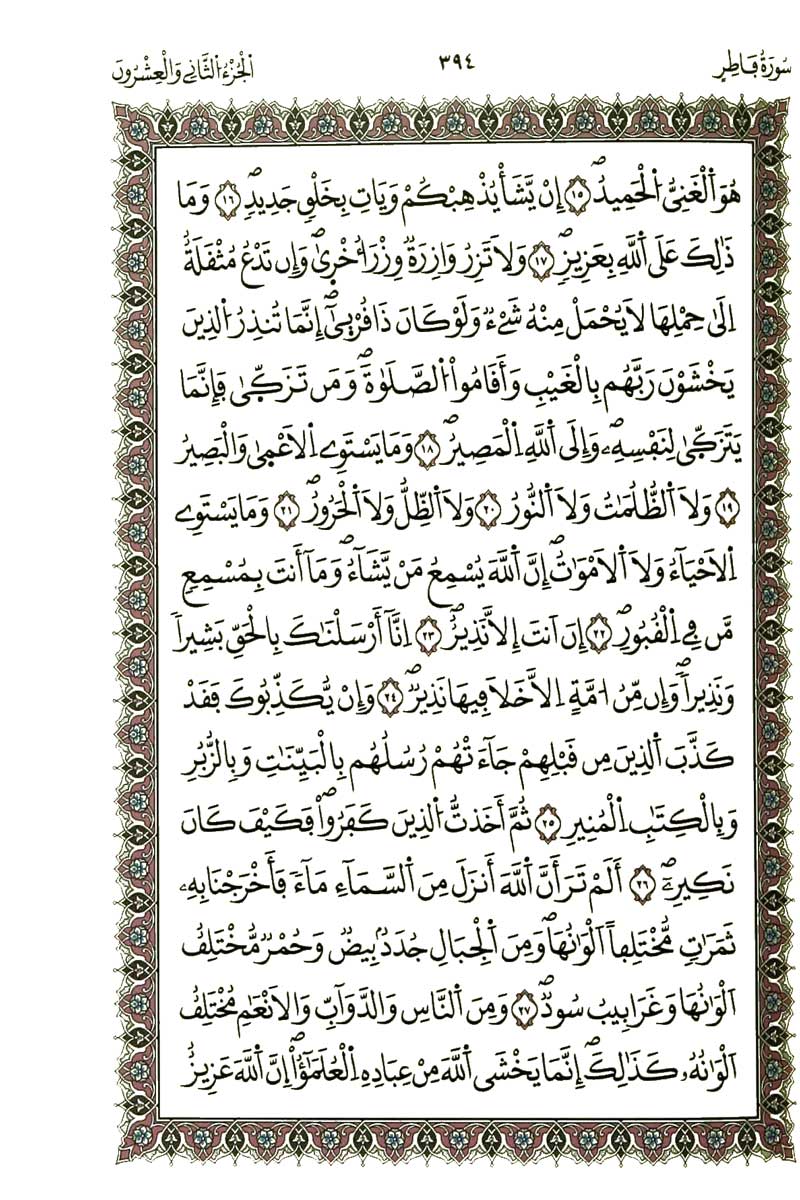 سُورَةُ فَاطِرٍ
٣٩٤
اَلْجُزْءُ الثَّانِي وَالْعِشْرُونَ
هُوَ اَ۬لْغَنِيُّ اُ۬لْحَمِيدُۖ ١٥ إِنْ يَّشَأْ يُذْهِبْكُمْ وَيَاتِ بِخَلْقٖ جَدِيدٖۖ ١٦ وَمَا
ذَٰلِكَ عَلَى اَ۬للَّهِ بِعَزِيزٖۖ ١٧ وَلَا تَزِرُ وَازِرَةٞ وِزْرَ أُخْر۪ىٰۖ وَإِن تَدْعُ مُثْقَلَةٌ
اِلَىٰ حِمْلِهَا لَا يُحْمَلْ مِنْهُ شَےْءٞ وَلَوْ كَانَ ذَا قُرْب۪ىٰٓۖ إِنَّمَا تُنذِرُ اُ۬لذِينَ
يَخْشَوْنَ رَبَّهُم بِالْغَيْبِ وَأَقَامُواْ اُ۬لصَّلَوٰةَۖ وَمَن تَزَكّ۪ىٰ فَإِنَّمَا
يَتَزَكّ۪ىٰ لِنَفْسِهِۦۖ وَإِلَى اَ۬للَّهِ اِ۬لْمَصِيرُۖ ١٨ وَمَا يَسْتَوِے اِ۬لَاعْم۪ىٰ وَالْبَصِيرُ
١٩ وَلَا اَ۬لظُّلُمَٰتُ وَلَا اَ۬لنُّورُ ٢٠ وَلَا اَ۬لظِّلُّ وَلَا اَ۬لْحَرُورُۖ ٢١ وَمَا يَسْتَوِے
اِ۬لَاحْيَآءُ وَلَا اَ۬لَامْوَٰتُۖ إِنَّ اَ۬للَّهَ يُسْمِعُ مَنْ يَّشَآءُۖ وَمَآ أَنتَ بِمُسْمِعٖ
مَّن فِے اِ۬لْقُبُورِۖ ٢٢ إِنَ اَنتَ إِلَّا نَذِيرٌۖ ٢٣ اِنَّآ أَرْسَلْنَٰكَ بِالْحَقِّ بَشِيراٗ
وَنَذِيراٗۖ وَإِن مِّنُ ا۟مَّةٍ اِلَّا خَلَا فِيهَا نَذِيرٞۖ ٢٤ وَإِنْ يُّكَذِّبُوكَ فَقَدْ
كَذَّبَ اَ۬لذِينَ مِن قَبْلِهِمْ جَآءَتْهُمْ رُسُلُهُم بِالْبَيِّنَٰتِ وَبِالزُّبُرِ
وَبِالْكِتَٰبِ اِ۬لْمُنِيرِ ٢٥ ثُمَّ أَخَذتُّ اُ۬لذِينَ كَفَرُواْۖ فَكَيْفَ كَانَ
نَكِيرِۦٓۖ ٢٦ أَلَمْ تَرَ أَنَّ اَ۬للَّهَ أَنزَلَ مِنَ اَ۬لسَّمَآءِ مَآءٗ فَأَخْرَجْنَا بِهِۦ
ثَمَرَٰتٖ مُّخْتَلِفاً اَلْوَٰنُهَاۖ وَمِنَ اَ۬لْجِبَالِ جُدَدُۢ بِيضٞ وَحُمْرٞ مُّخْتَلِفٌ
اَلْوَٰنُهَا وَغَرَابِيبُ سُودٞۖ ٢٧ وَمِنَ اَ۬لنَّاسِ وَالدَّوَآبِّ وَالَانْعَٰمِ مُخْتَلِفٌ
اَلْوَٰنُهُۥ كَذَٰلِكَۖ إِنَّمَا يَخْشَى اَ۬للَّهَ مِنْ عِبَادِهِ اِ۬لْعُلَمَٰٓؤُاْۖ إِنَّ اَ۬للَّهَ عَزِيزٌ